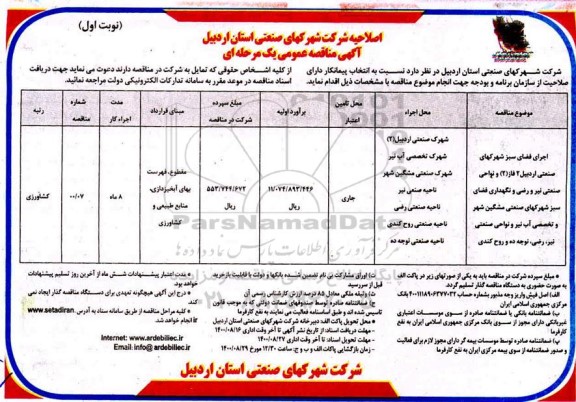 (نوبت اول)
اصلاحیه شرکت شهرکهای صنعتی استان اردبیل
آگهی مناقصه عمومی یک مرحله ای
شرکت شهرکهای صنعتی استان اردبیل در نظر دارد نسبت به انتخاب پیمانکار دارای
صلاحیت از سازمان برنامه و بودجه جهت انجام موضوع مناقصه با مشخصات ذیل اقدام نماید.
از کلیه اشخاص حقوقی که تمایل به شرکت در مناقصه دارند دعوت می نماید جهت دریافت
اسناد مناقصه در موعد مقرر به سامانه تدارکات الکترونیکی دولت مراجعه نمائید.
موضوع مناقصه
محل اجراء
محل تامین اعتبار
برآورد اولیه
مبلغ سپرده شرکت در مناقصه
مبنای قرارداد
مدت اجراء کار
شماره مناقصه
رتبه
اجرای فضای سبز شهرکهای
صنعتی اردبیل۲ فاز(۲) و نواحی
صنعتی نیر و رضی و نگهداری فضای
سبز شهرکهای صنعتی مشگین شهر
و تخصصی آب نیر و نواحی صنعتی
نیر، رضی، توده ده و روح کندی
شهرک صنعتی اردبیل(۲)
شهرک تخصصی آب نیر
شهرک صنعتی مشگین شهر
ناحیه صنعتی نیر
ناحیه صنعتی رضی
ناحیه صنعتی روح کندی
ناحیه صنعتی توده ده
جاری
۱۱/۰۷۴/۸۹۳/۴۴۶
ریال
۵۵۳/۷۴۴/۶۷۲
ریال
مقطوع، فهرست
بهای آبخیزداری،
منابع طبیعی و
کشاورزی
۸ ماه
۰۰/۰۷
کشاورزی
ParsNamadData
* مبلغ سپرده شرکت در مناقصه باید به یکی از صورتهای زیر در پاکت الف
به صورت حضوری به دستگاه مناقصه گذار تسلیم گردد.
الف) اصل فیش واریز وجه مذبور بشماره حساب ۴۰۰۱۱۱۸۹۰۶۳۷۷۰۳۲ بانک
مرکزی جمهوری اسلامی ایران
ب) ضمانتنامه بانکی یا ضمانتنامه صادره از سوی موسسات اعتباری
غیربانکی دارای مجوز از سوی بانک مرکزی جمهوری اسلامی ایران به نفع
کارفرما
پ) ضمانتنامه صادره توسط موسسات بیمه گر دارای مجوز لازم برای فعالیت
و صدور ضمانتنامه از سوی بیمه مرکزی ایران به نفع کارفرما
ت) اوراق مشارکت بی نام تضمین شده بانکها و دولت با قابلیت بازخرید
قبل از سررسید
ث) وثیقه ملکی معادل ۸۵ درصد ارزش کارشناسی رسمی آن
ج) ضمانتنامه صادره توسط صندوقهای ضمانت دولتی که به موجب قانون
تاسیس شده اند و طبق اساسنامه فعالیت می نمایند به نفع کارفرما
* محل تحویل پاکت الف: دبیرخانه شرکت شهرکهای صنعتی استان اردبیل
- مهلت دریافت اسناد: از تاریخ نشر آگهی تا آخر وقت اداری ۱۴۰۰/۰۸/۱۶
- مهلت تحویل اسناد: تا آخر وقت اداری ۱۴۰۰/۰۸/۲۷
- زمان بازگشایی پاکات الف و ب و ج: ساعت ۱۲/۳۰ مورخ ۱۴۰۰/۰۸/۲۹
* مدت اعتبار پیشنهادات شش ماه از آخرین روز تسلیم پیشنهادات
خواهد بود.
* درج این آگهی هیچگونه تعهدی برای دستگاه مناقصه گذار ایجاد نمی
کند.
* کلیه مراحل مناقصه از طریق سامانه ستاد به آدرس www.setadiran.
انجام خواهد شد.
Internet: www.ardebiliec.ir
Email: info@ ardebiliec.ir
شرکت شهرکهای صنعتی استان اردبیل